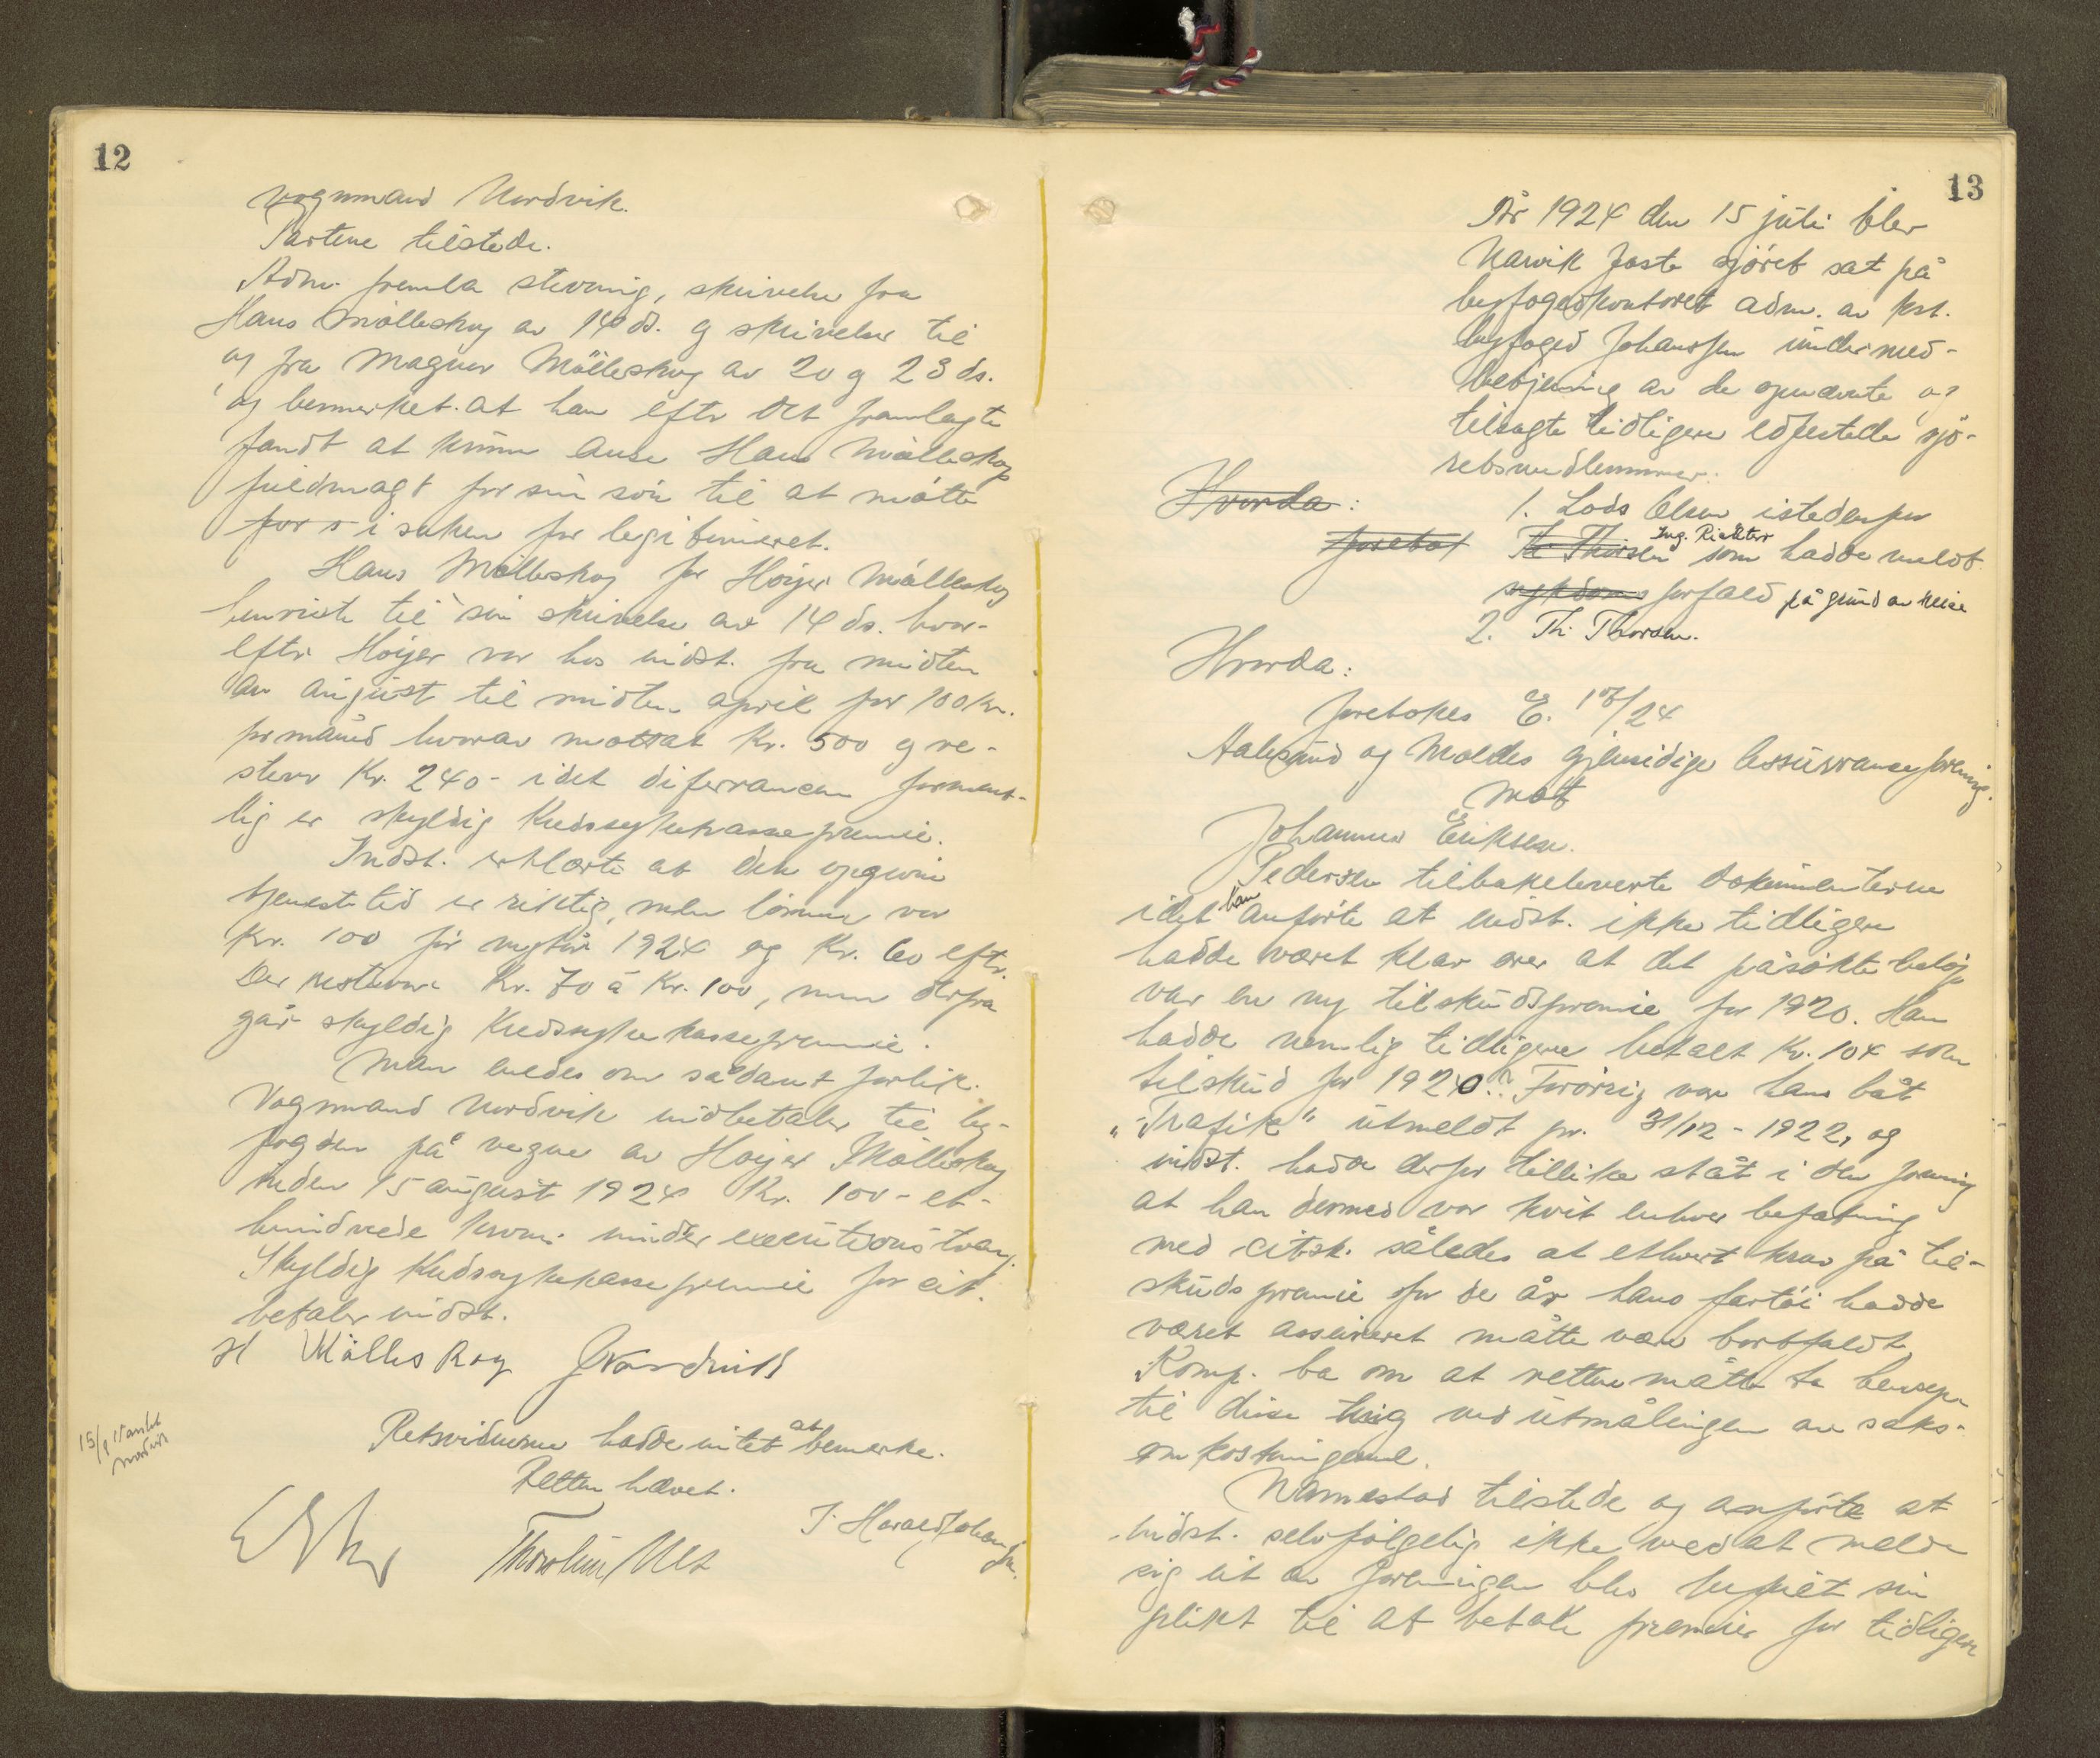 12
vognmand Nordvik.
Partene tilstede.
Adm. fremla stevning, skrivelse fra
Hans Mølleskog av 14 ds. og skrivelser til
og fra Magnus Mølleskog av 20 og 23 ds.
og bemerket at han efter det framlagte
fandt at kunne anse Hans Mølleskogs
fuldmagt for sin søn til at møtte
for i saken for legitimeret.
Hans Mølleskog for Høijer Mølleskog
henviste til sin skrivelse av 14 ds. hvor-
efter Høijer var hos indst. fra midten
av august til midten april for 100 kr.
pr måned hvorav mottat Kr. 500 og re-
sterer Kr. 240- idet diferrancen forment-
lig er skyldig Kredssykekassepremie.
Indst. erklærte at den opgivne
tjenestetid er riktig, men lønnen var
Kr. 100 før nytår 1924 og Kr. 60 efter.
Der resterer Kr. 70 à Kr. 100, men derfra
går skyldig Kredssykekassepremie.
Man enedes om sådant forlik.
Vognmand Nordvik indbetaler til by-
fogden på vegne av Høijer Mølleskog
inden 15 august 1924 Kr. 100- et-
hundrede kroner under executionstvang.
Skyldig Kredssykekassepremie for cit.
betaler indst.
H Mølleskog J Nordvik
Retsvidnerne hadde intet at bemerke.
Retten hævet.
15/8
Nordvik
J. Harald Johanssen.
13
År 1924 den 15 juli blev
Narvik faste sjøret sat på
byfogedkontoret adm. av kst.
byfoged Johanssen under med-
betjening av de opnævnte og
tilsagte tidligere edfestede sjø-
retsmedlemmer:
Hvorda:
1. Lods Olsen istedenfor
foretat Th Thorsen Ing. Richter som hadde meldt
sykdoms forfald på grund av reise
2. Th. Thorsen.
Hvorda:
foretokes E. 17/24
Aalesund og Moldes gjensidige Assuranceforening.
mot
Johannes Eriksen.
Pedersen tilbakeleverte dokumenterne
idet han anførte at indst. ikke tidligere
hadde været klar over at det påsøkte beløp
var en ny tilskudspremie for 1920. Han
hadde nemlig tidligere betalt Kr. 104 som
tilskud for 1920. Forøvrig var hans båt
"Trafik" utmeldt pr. 31/12-1922, og
indst. hadde derfor tillike ståt i den formening
at han dermed var kvit enhver befatning
med citsk. således at ethvert krav på til-
skudspremie for de år hans fartøi hadde
været assureret måtte være bortfaldt.
Komp. ba om at retten måtte ta hensyn
til disse ting ved utmålingen av saks-
omkostningerne.
Wamestad tilstede og anførte at
indst. selvfølgelig ikke ved at melde
sig ut av foreningen blev befriet sin
plikt til at betale premier for tidligere